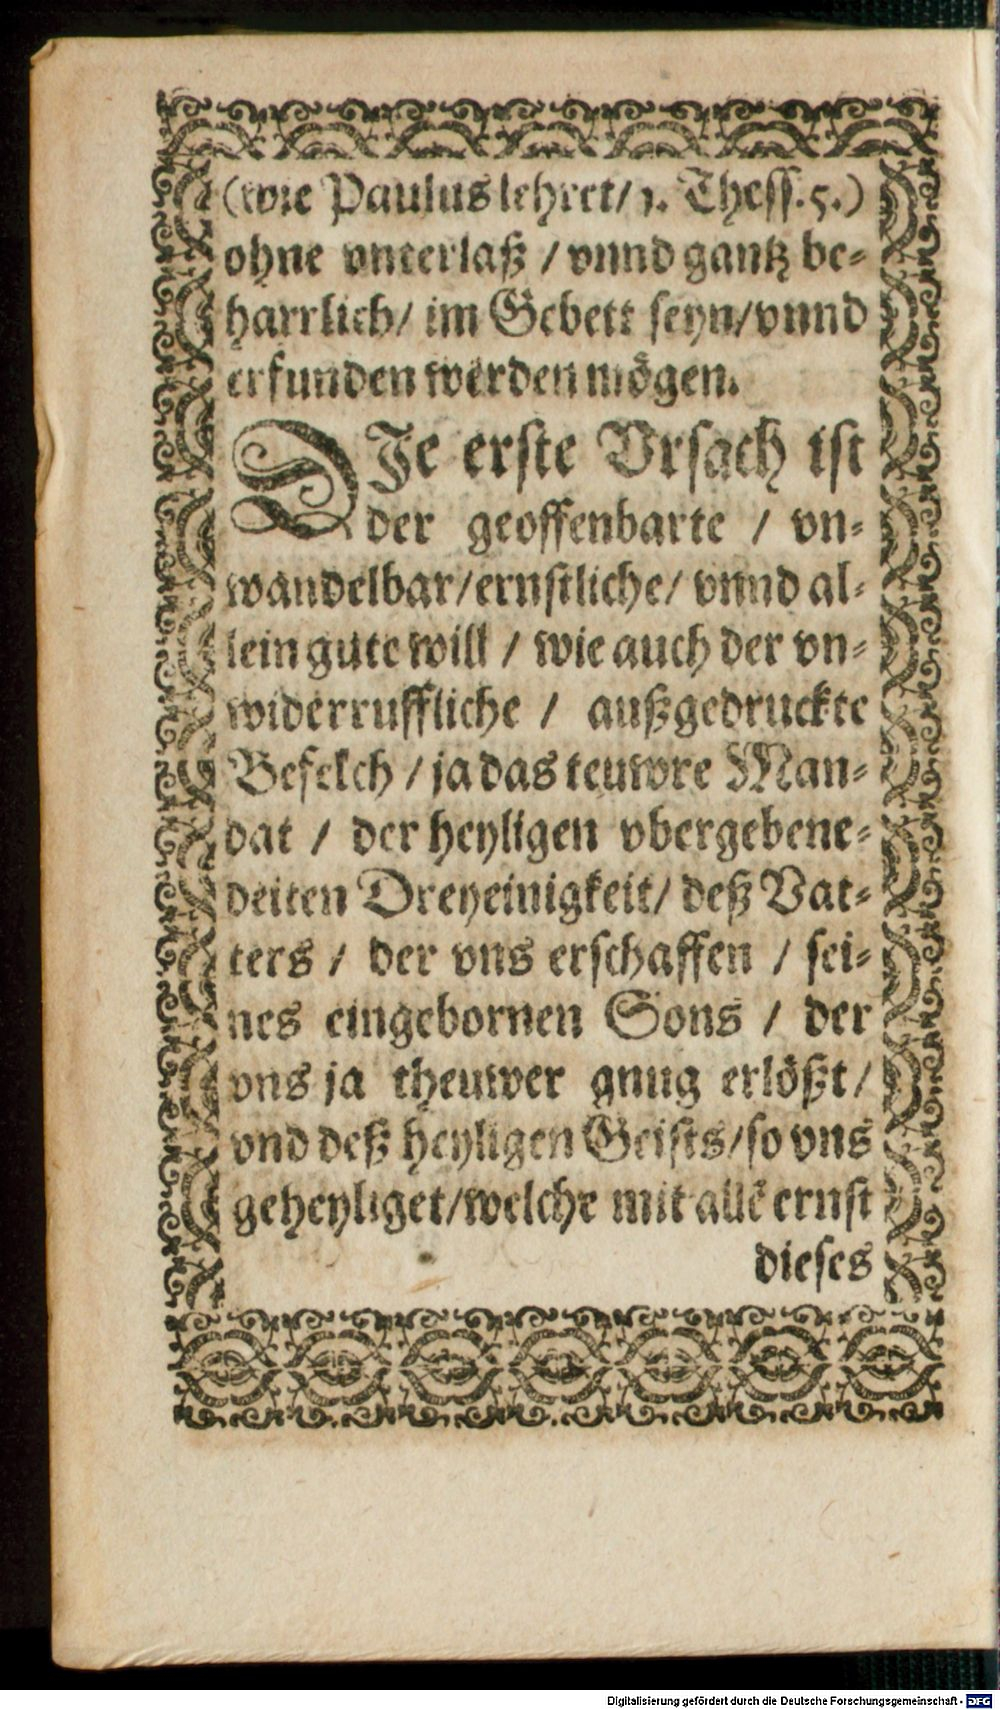 (wie Paulus lehret/ 1. Thess. 5.)
ohne vnterlaß / vnnd gantz be-
harrlich/ im Gebett seyn/ vnnd
erfunden werden mögen.
DIe erste Vrsach ist
der geoffenbarte / vn-
wandelbar/ ernstliche/ vnnd al-
lein gute will / wie auch der vn-
widerruffliche / außgedruckte
Befelch / ja das teuwre Man-
dat / der heyligen vbergebene-
deiten Dreyeinigkeit/ deß Vat-
ters / der vns erschaffen / sei-
nes eingebornen Sons / der
vns ja theuwer gnug erlößt/
vnd deß heyligen Geists/ so vns
geheyliget/ welche mit allẽ ernst
dieses
Digitalisierung gefördert durch die Deutsche Forschungsgemeinschaft - DFG